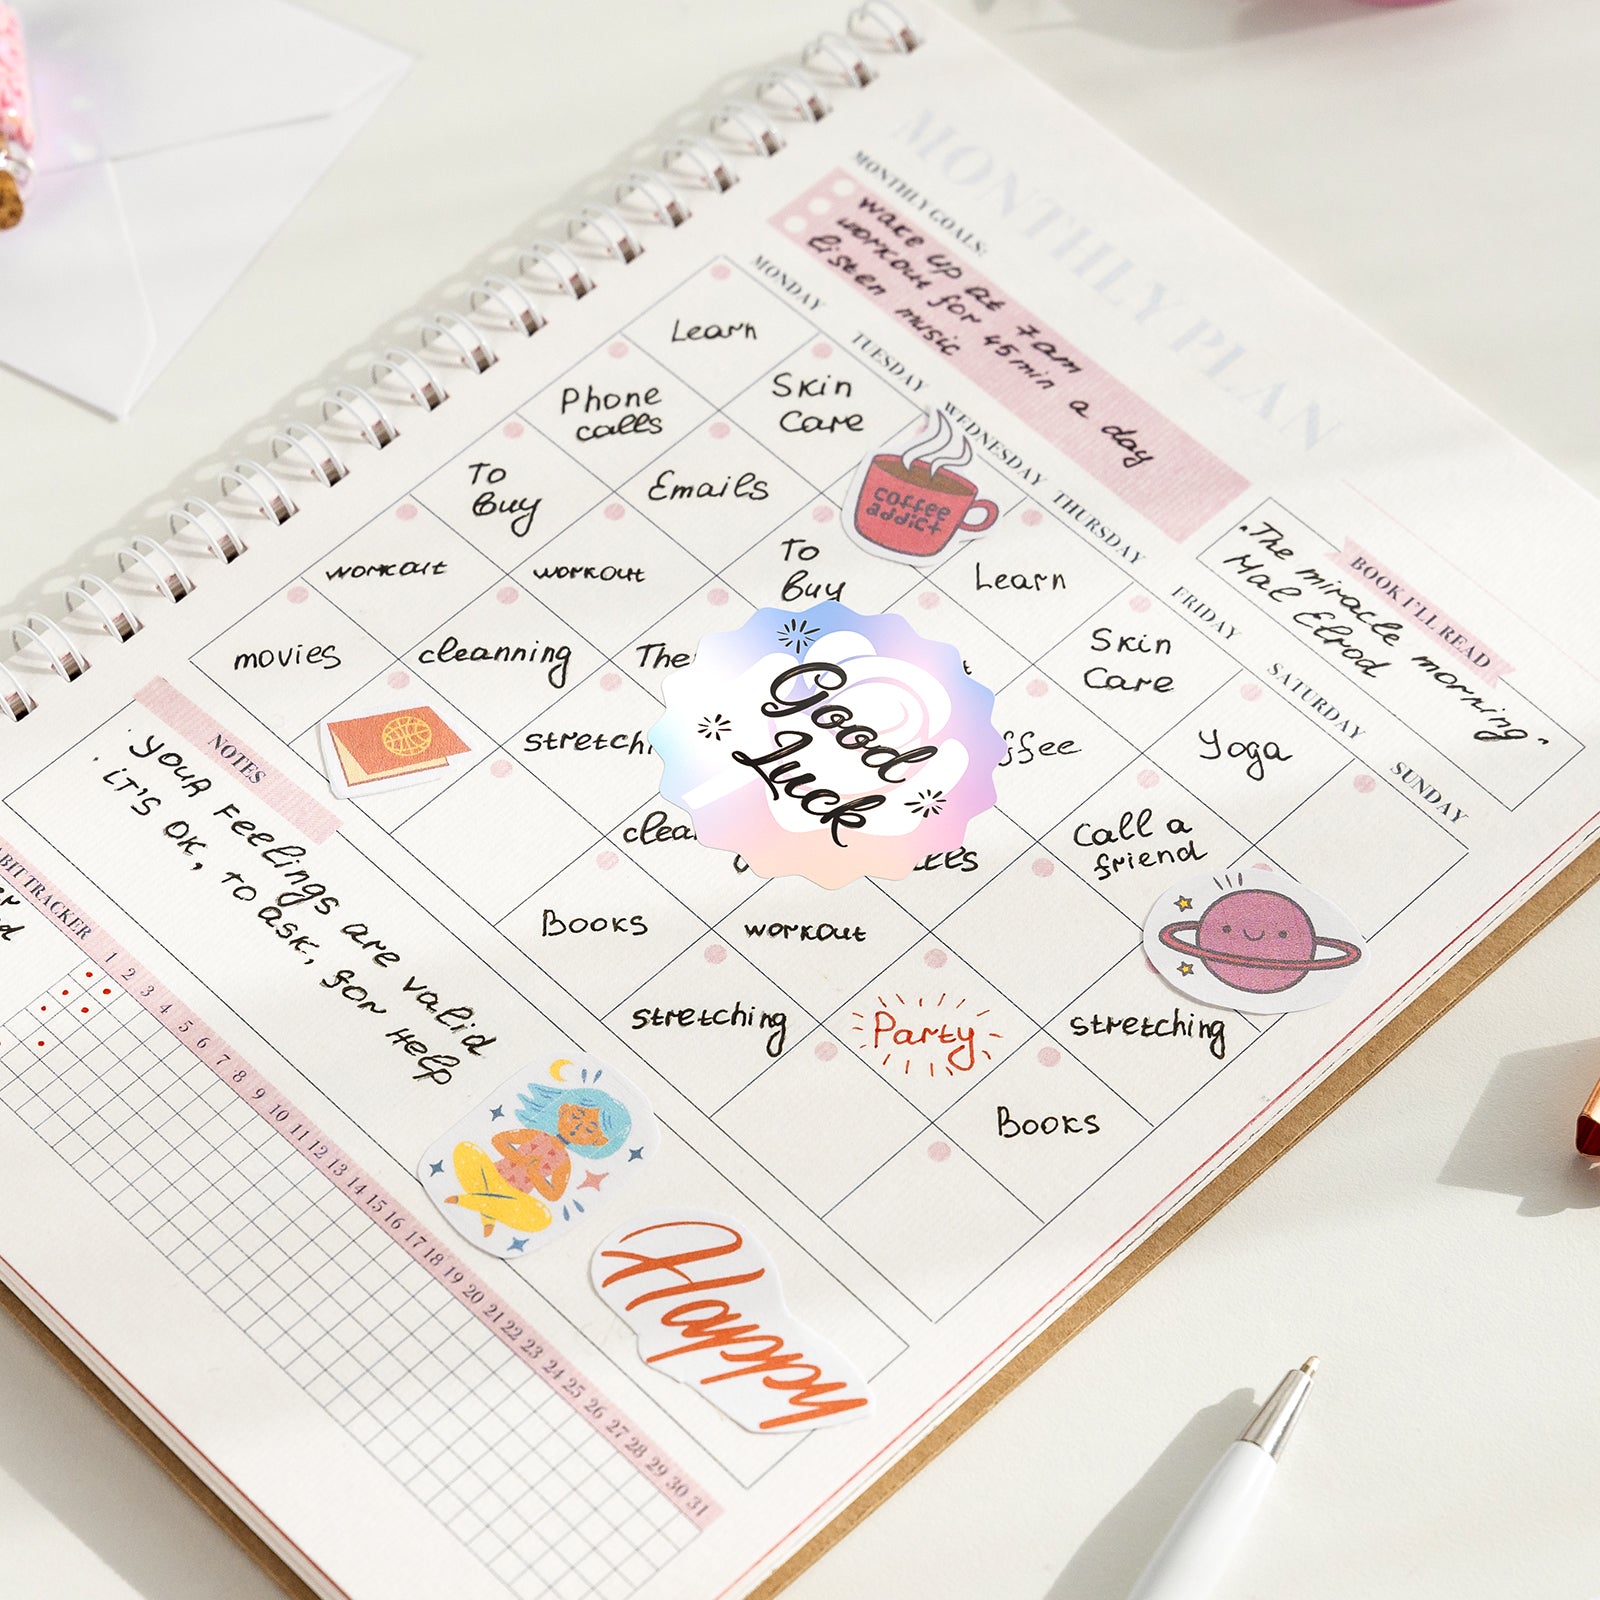 MONTHLY PLAN
MONTHLY GOALS:
wake up at 7 am
workout for 45 min a day
listen music
BOOK I'LL READ
"The miracle morning"
Hal Elrod
MONDAY
TUESDAY
WEDNESDAY
THURSDAY
FRIDAY
SATURDAY
SUNDAY
Learn
Phone
calls
Skin
Care
To
Buy
Emails
coffee
addict
workout
workout
To
Buy
Learn
movies
cleanning
Skin
Care
stretchi
Yoga
Good
Luck
Call a
friend
Books
workout
stretching
Party
stretching
Books
NOTES
· YOUR Feelings are valid
· IT'S OK, to ask, for Help
Happy
1 2 3 4 5 6 7 8 9 10 11 12 13 14 15 16 17 18 19 20 21 22 23 24 25 26 27 28 29 30 31